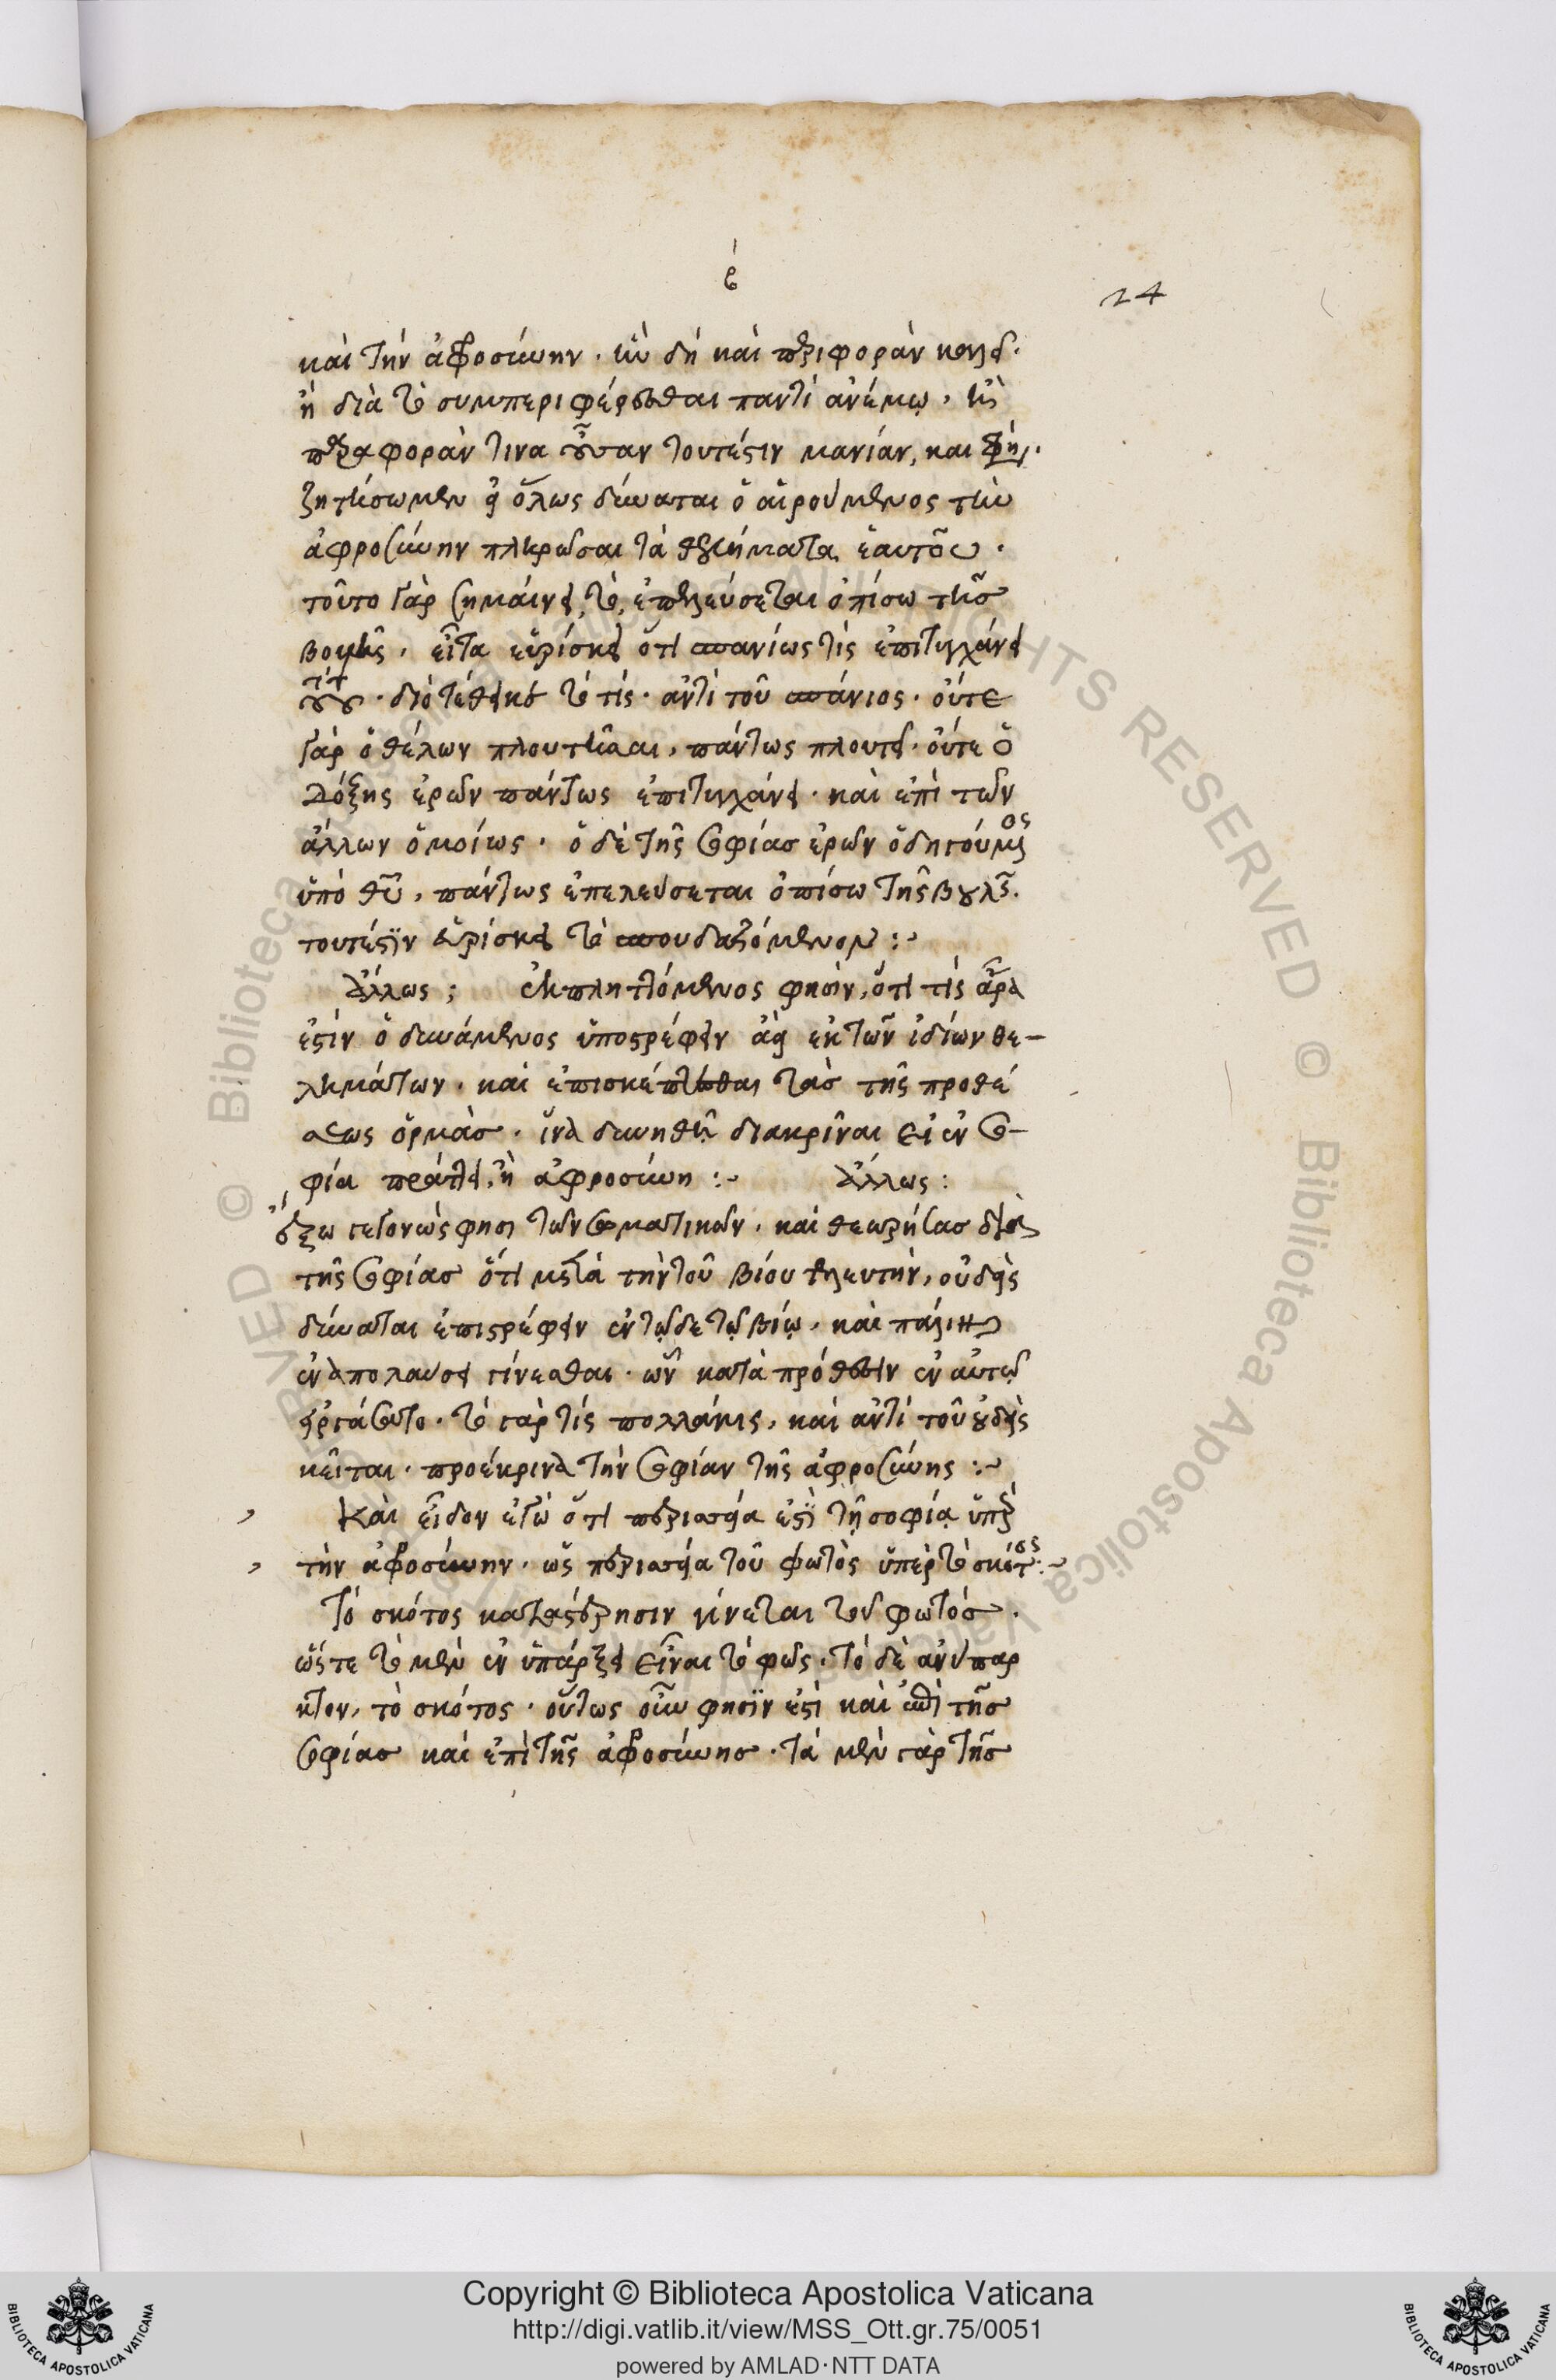 β
24
καὶ τὴν ἀφροσύνην· ἣν δὴ καὶ περιφορὰν καλεῖ·
ἢ διὰ τὸ συμπεριφέρεσθαι παντὶ ἀνέμῳ, ἢ ὡς
παραφοράν τινα οὖσαν τουτέστιν μανίαν, και φησί·
ζητήσωμεν εἰ ὅλως δύναται ὁ αἱρούμενος τὴν
ἀφροσύνην πληρῶσαι τὰ θελήματα ἑαυτοῦ·
τοῦτο γὰρ σημαίνει, τὸ, ἐπελεύσεται ὀπίσω τῆσ
βουλῆς, εἶτα εὑρίσκει ὅτι σπανίως τίς ἐπιτυγχάνει
τούτου· διὸ τέθεικε τὸ τίς· ἀντὶ τοῦ σπάνιος· οὔτε
γὰρ ὁ θέλων πλουτῆσαι, πάντως πλουτεῖ· οὔτε ὁ
δόξης ἐρῶν πάντως ἐπιτυγχάνει· καὶ ἐπὶ τῶν
ἄλλων ὁμοίως· ὁ δὲ τῆς σοφίασ ἐρῶν ὁδηγούμενος
ὑπὸ θυ, πάντως ἐπελεύσεται ὀπίσω τῆς βουλῆς·
τουτέστιν εὑρίσκει τὸ σπουδαζόμενον :~
Ἄλλως ; ἐκπληττόμενος φησὶν, ὅτι τίς ἆρα
ἐστὶν ὁ δυνάμενος ὑποστρέφειν ἀεὶ ἐκ τῶν ἰδίων θε-
λημάτων· καὶ ἐπισκέπτεσθαι τὰσ τῆς προθέ
σεως ὁρμὰσ· ἵνα δυνηθῇ διακρῖναι εἰ ἐν σο-
φία πράττει, ἢ ἀφροσύνη :~ Ἄλλως :
ἔξω γεγονὼς φησι τῶν σωματικῶν· καὶ θεωρήσασ διὰ
τῆς σοφίασ ὅτι μετὰ τὴν τοῦ βίου τελευτὴν, οὐδεὶς
δύναται ἐπιστρέφειν ἐν τῷδε τῷ βίῳ, καὶ πάλιν
ἐν ἀπολαύσει γίνεσθαι· ὧν κατὰ πρόθεσιν ἐν αὐτῷ
εἰργάσατο· τὸ γὰρ τίς πολλάκις, καὶ ἀντὶ τοῦ οὐδεὶς
κεῖται· προέκρινα τὴν σοφίαν τῆς ἀφροσύνης :~
Καὶ εἶδον ἐγὼ ὅτι περισσεία ἐστὶ τῇ σοφίᾳ ὑπὲρ
τὴν ἀφροσύνην· ὡς περισσεία τοῦ φωτὸς ὑπὲρ τὸ σκότος :~
Τὸ σκότος κατὰ στέρησιν γίνεται τοῦ φωτόσ·
ὥστε τὸ μὲν ἐν ὑπάρξει εἶναι τὸ φῶς· τὸ δὲ ἀνύπαρ
κτον, τὸ σκότος· οὕτως οὖν φησὶν ἐστὶ καὶ ἐπὶ τῆσ
σοφίασ καὶ ἐπὶ τῆς ἀφροσύνησ· τὰ μὲν γὰρ τῆσ
Copyright © Biblioteca Apostolica Vaticana
http://digi.vatlib.it/view/MSS_Ott.gr.75/0051
powered by AMLAD·NTT DATA